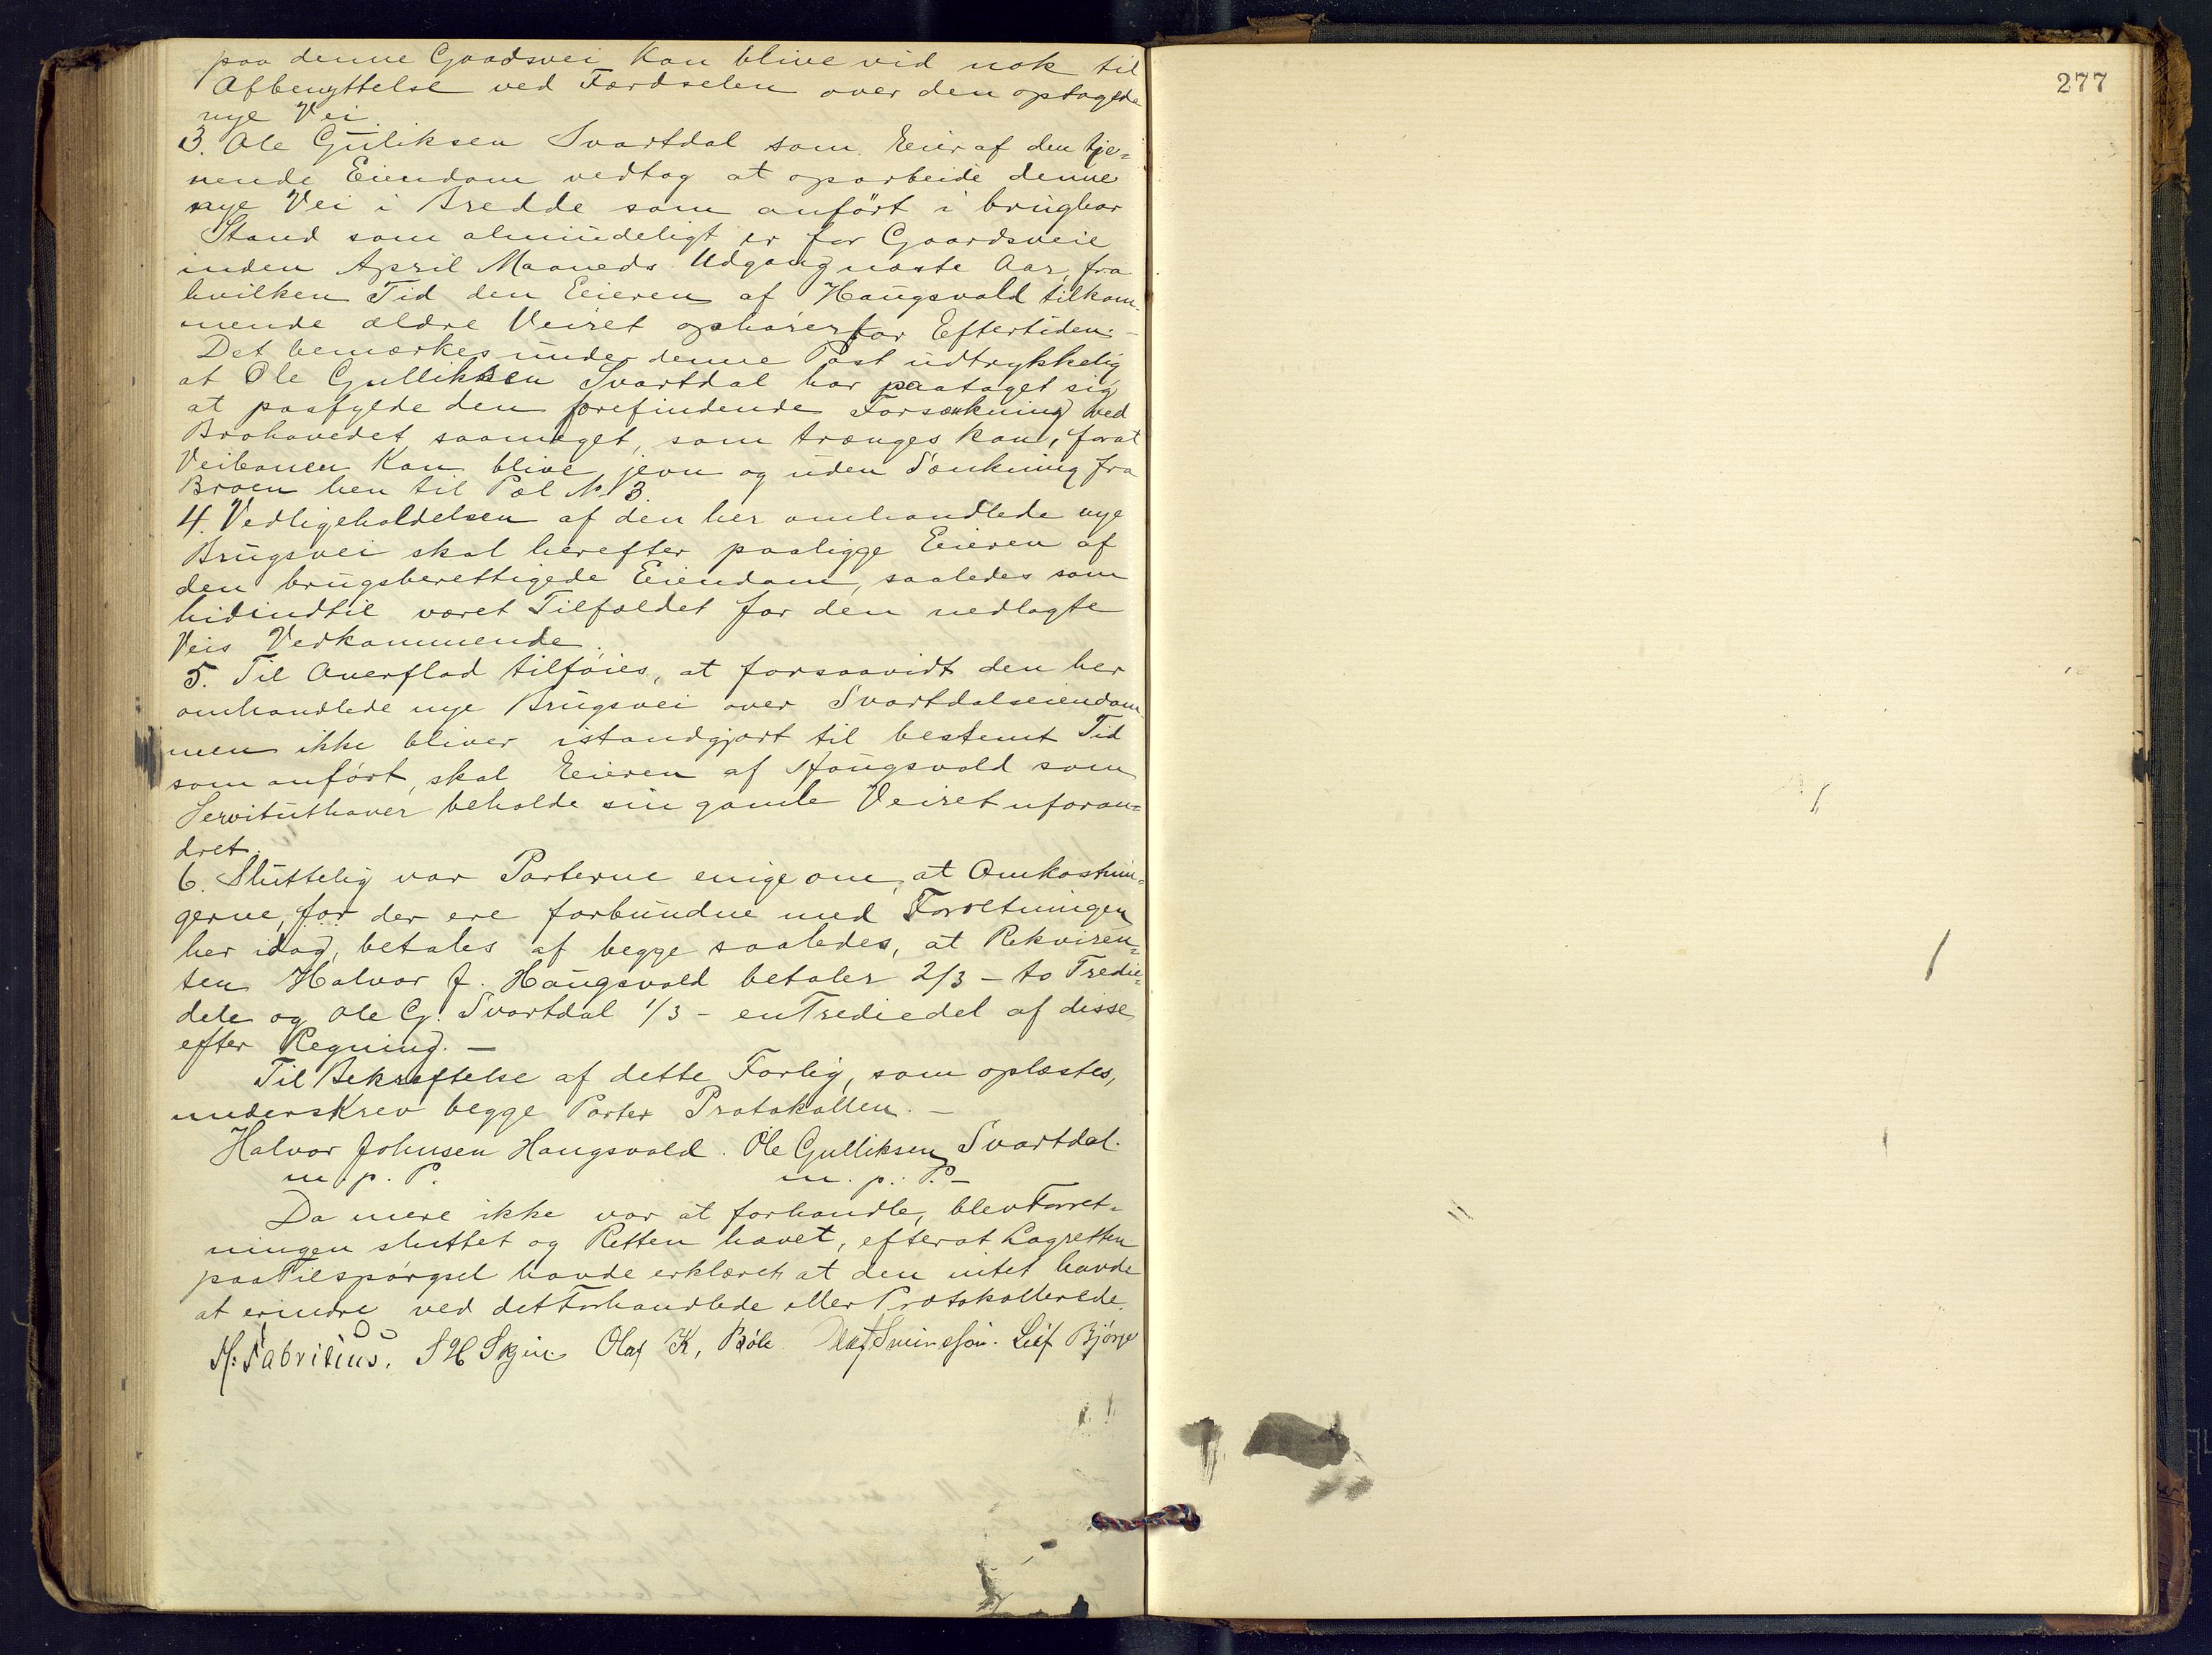 paa denne Gaadsvei kan blive vid nok til
Afbenyttelse ved Færdselen over den optagede
nye Vei.
3. Ole Guliksen Svartdal som Eier af den tje=
nende Eiendom vedtog at oparbeide denne
nye Vei i Bredde som anført i brugbar
Stand som almindeligt er for Gaardsveie
inden April Maaneds Udgang næste Aar, fra
hvilken Tid den Eieren af Haugsvold tilkom-
mende ældre Veiret ophører for Eftertiden. –
Det bemærkes under denne Post udtrykkelig
at Ole Gulliksen Svartdal har paataget sig
at paafylde den forefindende Forsænkning ved
Brohovedet saameget, som trænges kan, forat
Veibanen kan blive jevn og uden Sænkning fra
Broen hen til Pæl No 3.
4. Vedligeholdelsen af den her omhandlede nye
Brugsvei skal herefter paaligge Eieren af
den brugsberettigede Eiendom, saaledes som
hidindtil været Tilfældet for den nedlagte
Veis Vedkommende.
5. Til Overflod tilføies, at forsaavidt den her
omhandlede nye Brugsvei over Svartdalseiendom
men ikke bliver istandgjort til bestemt Tid
som anført, skal Eieren af Haugsvold som
Servituthaver beholde sin gamle Veiret uforan=
dret.
6. Sluttelig var Parterne enige om, at Omkostnin=
gerne, for der ere forbundne med Forretningen
her idag, betales af begge saaledes, at Rekviren=
ten Halvor J. Haugsvold betaler 2/3 – to Tredie=
dele og Ole G. Svartdal 1/3 – en Trediedel af disse
efter Regning. –
Til Bekræftelse af dette Forlig, som oplæstes,
underskrev begge Parter Protokollen. –
Halvor Johnsen Haugsvold. Ole Gulliksen Svartdal.
m. p. P. m. p. P. –
Da mere ikke var at forhandle, blev Forret=
ningen sluttet og Retten hævet, efterat Lagretten
paa Tilspørgsel havde erklæret at den intet havde
at erindre ved det Forhandlede eller Protokollerede.
H. Fabritius. Olaf K. Bøle Leif Bjørge
277